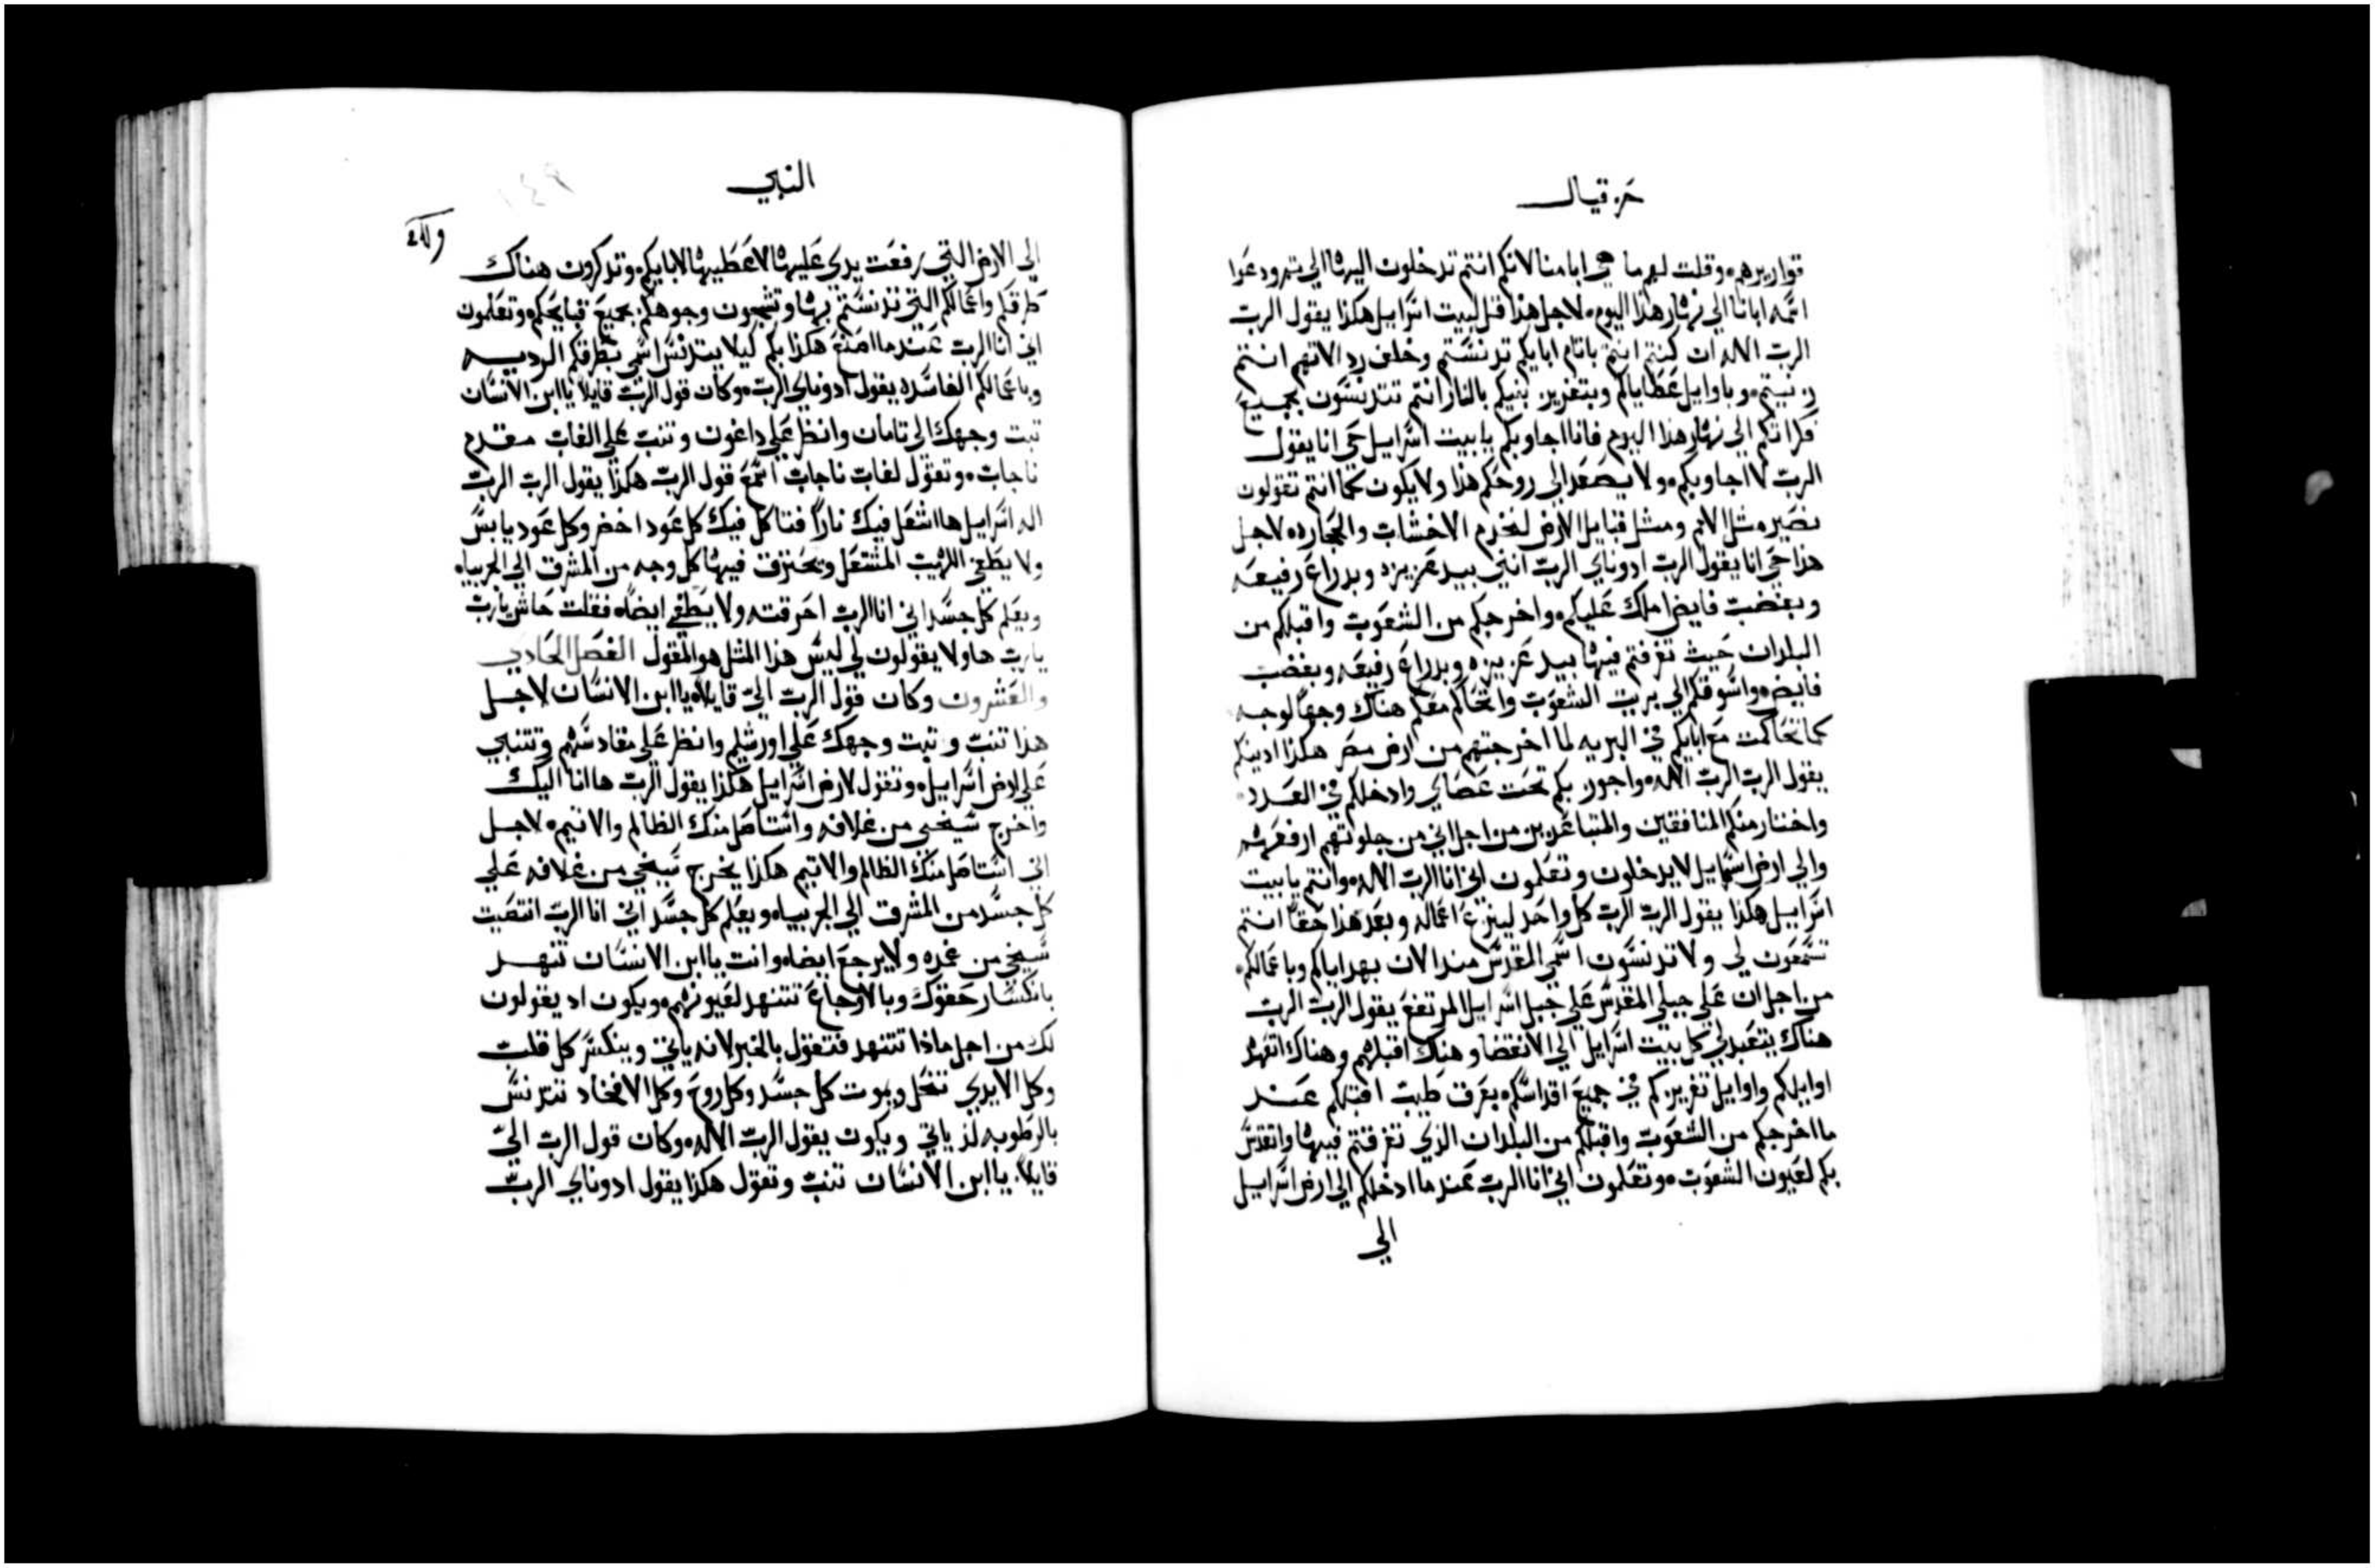 حزقيال
قواريرهم وقلت لهم ما هي ابامنا لانكم انتم تدخلون اليها الي ثم ودعوا
اسمه ابانا الي نهار هذا اليوم لاجل هذا قل لبيت اسراييل هكذا يقول الرب
الرب الاله ان كنتم انتم باثام ابايكم تدنستم وخلف رد الاتهم انتم
زنيتم وباوايل عطاياكم وبتفريز بنيكم بالنار انتم تتدنسون بجميع
فكراتكم الي نهار هذا اليوم فانا اجاوبكم يا بيت اسراييل حي انا يقول
الرب لا اجاوبكم ولا يصعد الي روحكم هذا ولا يكون كما انتم تقولون
نصير مثل الامم ومثل قبايل الارض لنخدم الاخشاب والحجاره لاجل
هذا حي انا يقول الرب ادوناي الرب انني بيد عزيزه وبدراع رفيعه
وبغضب فايض املك عليكم واخرجكم من الشعوب واقبلكم من
البلدان حيث تفرقتم فيها بيد عزيزه وبدراع رفيعه وبغضب
فايض واسوقكم الي بريت الشعوب واتحاكم معكم هناك وجها لوجه
كما تحاكمت مع ابايكم في البريه لما اخرجتهم من ارض مصر هكذا ادينكم
يقول الرب الرب الاله واجوز بكم تحت عصاي وادخلكم في العدد
واختار منكم المنافقين والمتباعدين من اجل اني من جلوتهم ارفعهم
والي ارض اسراييل لا يدخلون وتعلمون اني انا الرب الاله وانتم يا بيت
اسراييل هكذا يقول الرب الرب كل واحد لينزع اعماله وبعد هذا حقا انتم
تسمعون لي ولا تدنسون اسمي المقدس منذ الان بهداياكم وباعمالكم
من اجل ان علي جبلي المقدس علي جبل اسراييل المرتفع يقول الرب الرب
هناك يتعبد لي كل بيت اسراييل الي الانقضا وهناك اقبلهم وهناك اتعهد
اوايلكم واوايل تفريزكم في جميع اقداسكم بعرف طيب اقبلكم عند
ما اخرجكم من الشعوب واقبلكم من البلدان الذي تفرقتم فيها واتقدس
بكم لعيون الشعوب وتعلمون اني انا الرب عندما ادخلكم الي ارض اسراييل
الي
النبي
الي الارض التي رفعت يدي عليها لاعطيها لابايكم وتدكرون هناك
طرقكم واعمالكم التي تدنستم بها وتشجون وجوهكم بجميع قبايحكم وتعلمون
اني انا الرب عندما اصنع هكذا بكم ليلا يتدنس اسمي بطرقكم الرديه
وباعمالكم الفاسده يقول ادوناي الرب وكان قول الرب قايلا يا ابن الانسان
تبت وجهك الي تامان وانظر علي داغون وتنب علي الغاب مقدم
ناجاب وتقول لغاب ناجاب اسمع قول الرب هكذا يقول الرب الرب
اله اسراييل ها اشعل فيك نارا فتاكل فيك كل عود اخضر وكل عود يابس
ولا يطفي اللهيب المشتعل ويحترق فيها كل وجه من المشرق الي الجربياه
ويعلم كل جسد اني انا الرب احرقته ولا يطفي ايضا فقلت حاش يا رب
يا رب هاولا يقولون لي ليس هذا المثل هو المقول الفصل الحادي
والعشرون وكان قول الرب الي قايلا يا ابن الانسان لاجل
هذا تنب وتبت وجهك علي اورشليم وانظر علي مقادسهم وتتنبي
علي ارض اسراييل وتقول لارض اسراييل هكذا يقول الرب ها انا اليك
واخرج سيخي من غلافه واستاصل منك الظالم والاثيم لاجل
اني استاصل منك الظالم والاثيم هكذا يخرج سيخي من غلافه علي
كل جسد من المشرق الي الجربياه ويعلم كل جسد اني انا الرب انتضيت
سيخي من غمده ولا يرجع ايضا وانت يا ابن الانسان تنهد
بانكسار حقوك وبالاوجاع تتنهد لعيونهم ويكون اد يقولون
لك من اجل ماذا تتنهد فتقول بالخبر لانه ياتي وينكسر كل قلب
وكل الايدي تنحل ويموت كل جسد وكل روح وكل الافخاد تتدنس
بالرطوبه لذ ياتي ويكون يقول الرب الاله وكان قول الرب الي
قايلا يا ابن الانسان تنب وتقول هكذا يقول ادوناي الرب